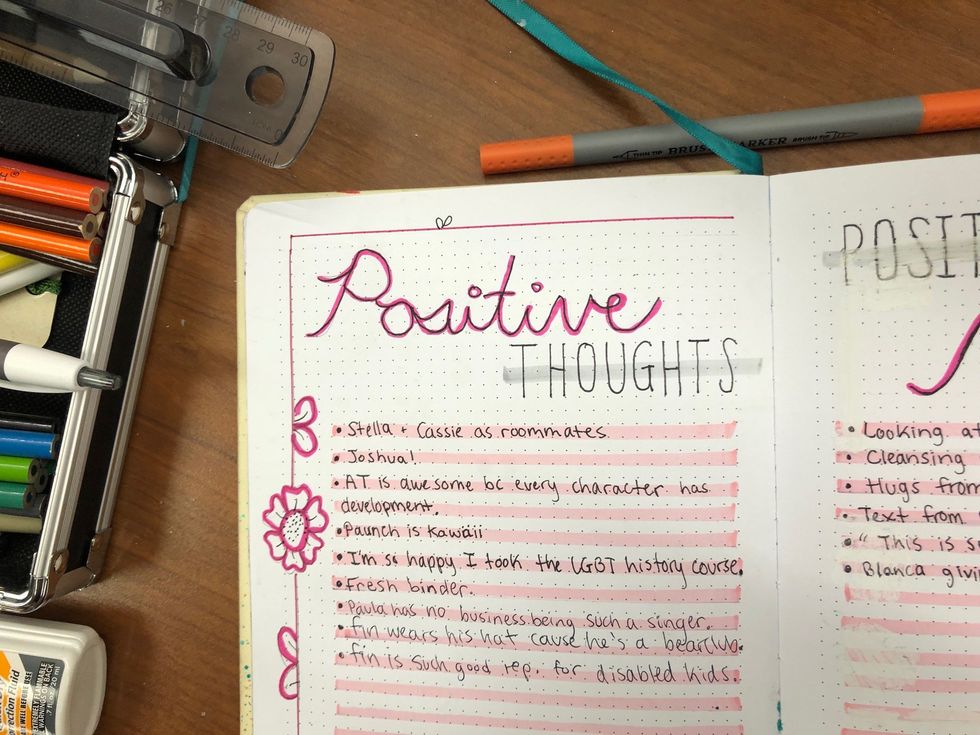 26 27 28 29 30
0
THIN TIP BRUSH MARKER BRUSH TIP
Positive
THOUGHTS
• Stella + Cassie as roommates
• Joshua!
• AT is awesome bc every character has
development.
• Paunch is Kawaii
• I'm so happy I took the LGBT history course.
• Fresh binder.
• Paula has no business being such a singer.
• fin wears his hat cause he's a bearcub.
• fin is such good rep. for disabled kids.
POSIT
• Looking at
• Cleansing
• Hugs from
• Text from
• " This is s
• Blanca givi
rection Fluid
WELL BEFORE USE
EXTREMELY FLAMMABLE
WARNINGS ON BACK
.7 fl oz 20 ml